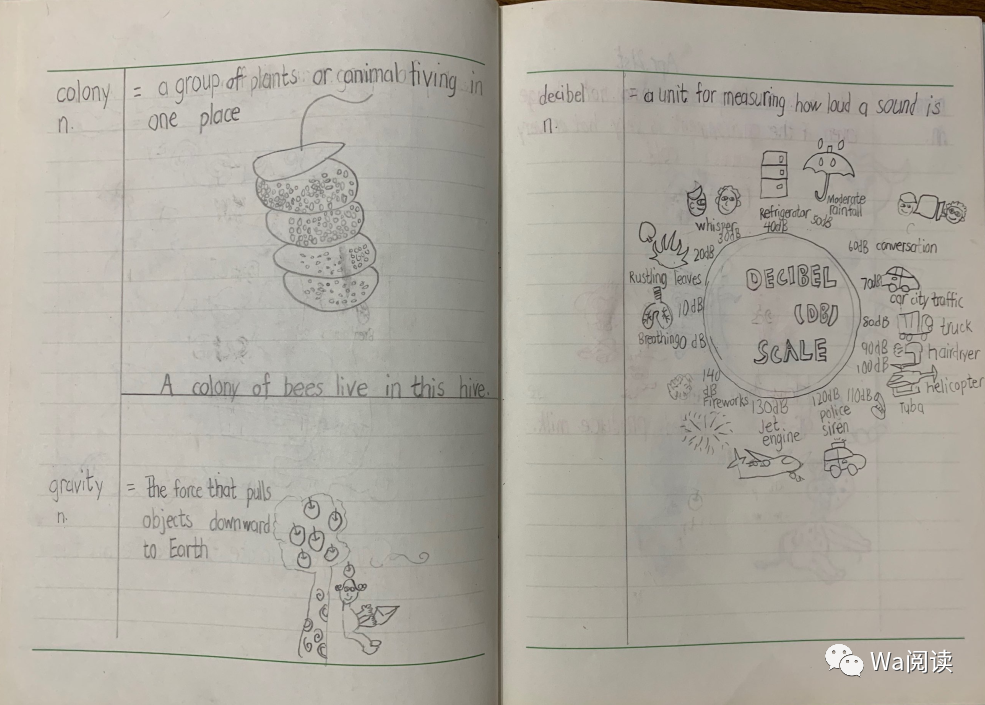 colony
n.
= a group of plants or canimal living in
one place
A colony of bees live in this hive.
gravity
n.
= The force that pulls
objects downward
to Earth
decibel
n.
= a unit for measuring how loud a sound is
DECIBEL
(DB)
SCALE
Breathing 0 dB
10 dB
Rustling leaves
20dB
whisper
30dB
Refrigerator
40dB
Moderate
rainfall
50dB
60dB conversation
70dB
car city traffic
80dB
truck
90dB
hairdryer
100dB
helicopter
110dB
Tuba
120dB
police
siren
130dB
Jet
engine
140
dB
Fireworks
Wa阅读